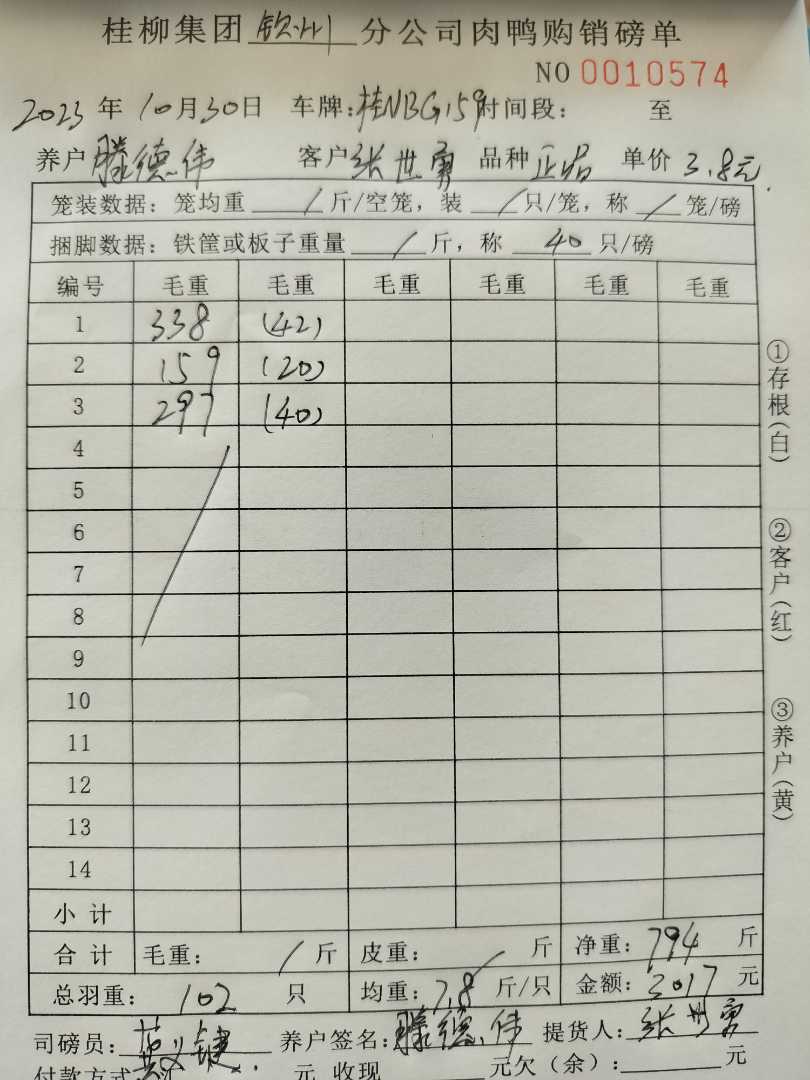 桂柳集团 钦州 分公司肉鸭购销磅单
NO 0010574
2023 年 10 月 30 日 车牌:桂NBG159 时间段: 至
养户 滕德伟 客户 张世勇 品种 正品 单价 3.8元
笼装数据: 笼均重 / 斤/空笼, 装 / 只/笼, 称 / 笼/磅
捆脚数据: 铁筐或板子重量 / 斤, 称 40 只/磅
编号 毛重 毛重 毛重 毛重 毛重 毛重
1 338 (42)
2 159 (20)
3 297 (40)
4
5
6
7
8
9
10
11
12
13
14
小计
合计 毛重: / 斤 皮重: / 斤 净重: 794 斤
总羽重: 102 只 均重: 7.8 斤/只 金额: 3017 元
司磅员: 养户签名: 滕德伟 提货人: 张世勇
付款方式 元 收现 元欠(余): 元
①存根(白)
②客户(红)
③养户(黄)